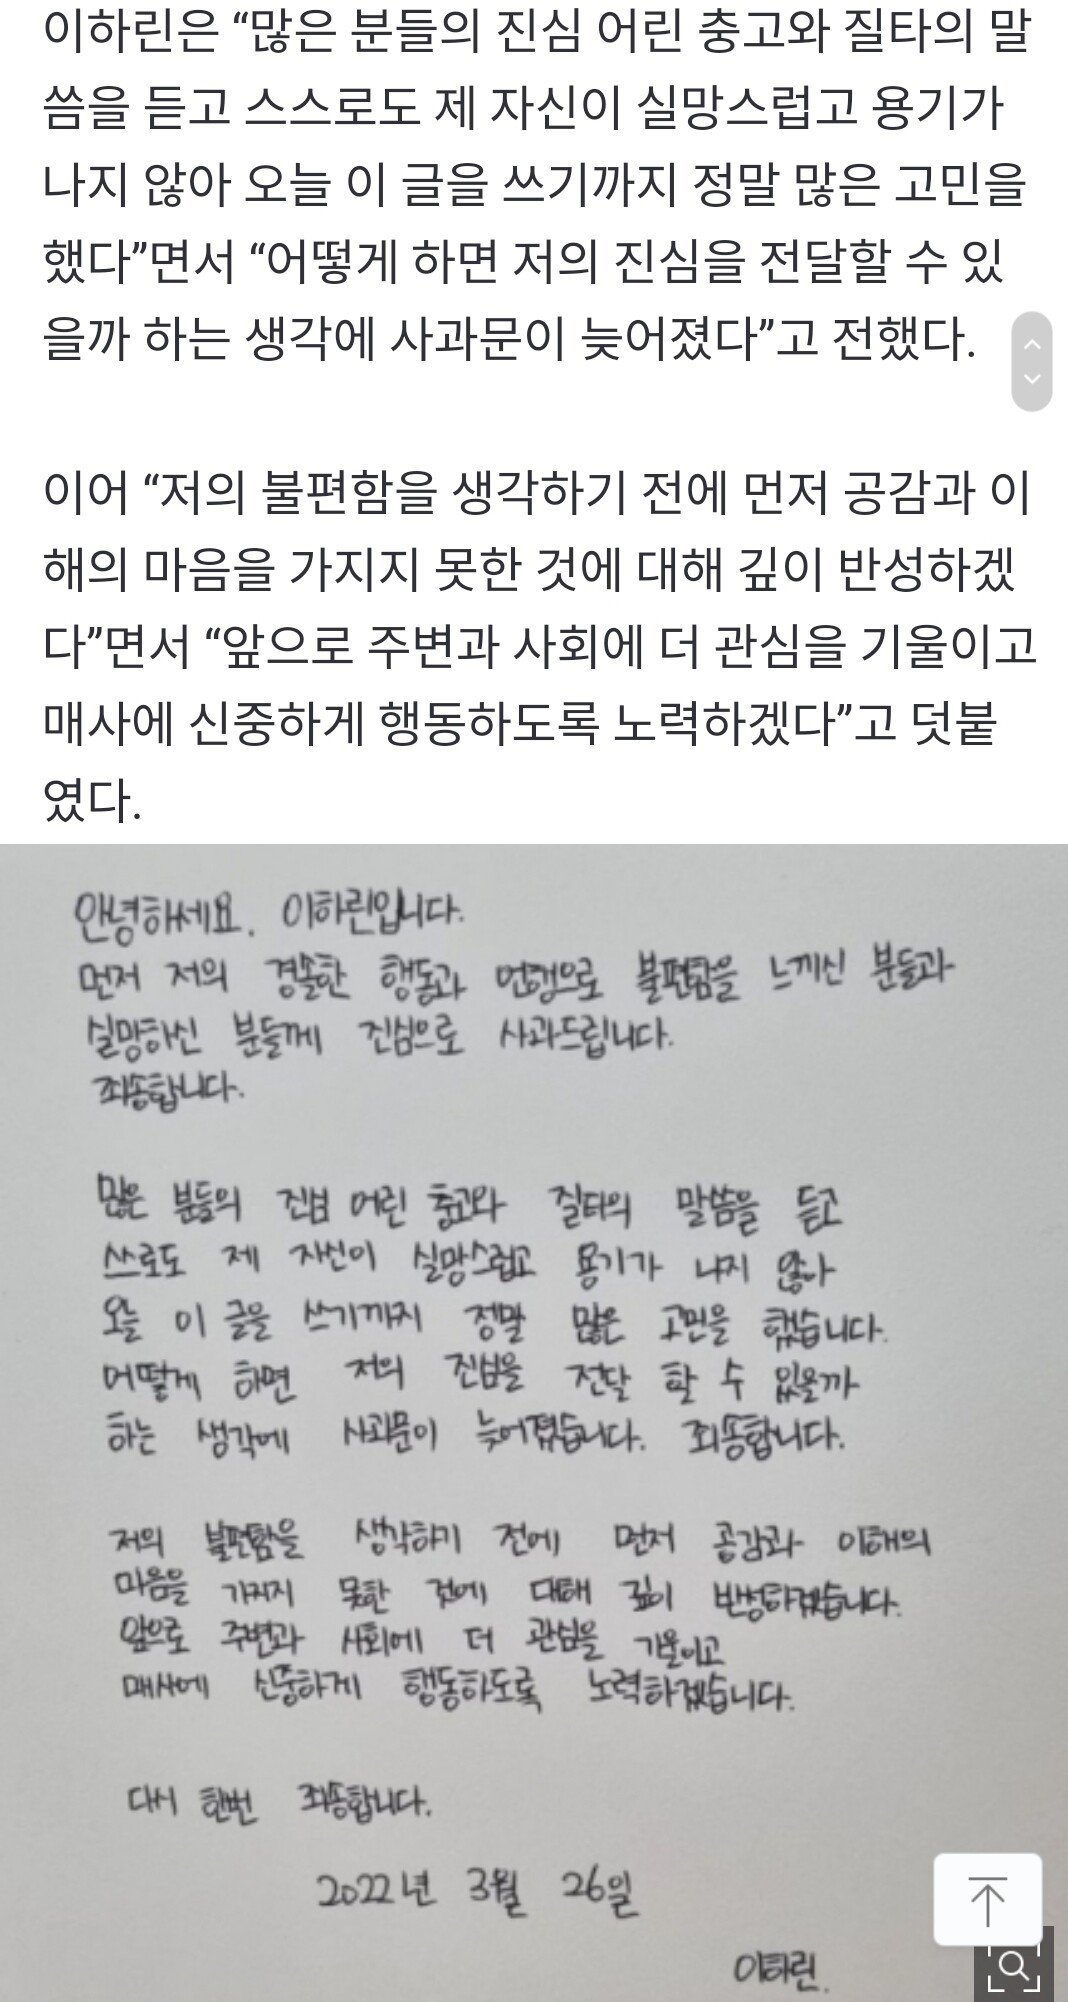 이하린은 “많은 분들의 진심 어린 충고와 질타의 말
씀을 듣고 스스로도 제 자신이 실망스럽고 용기가
나지 않아 오늘 이 글을 쓰기까지 정말 많은 고민을
했다”면서 “어떻게 하면 저의 진심을 전달할 수 있
을까 하는 생각에 사과문이 늦어졌다”고 전했다.
이어 “저의 불편함을 생각하기 전에 먼저 공감과 이
해의 마음을 가지지 못한 것에 대해 깊이 반성하겠
다”면서 “앞으로 주변과 사회에 더 관심을 기울이고
매사에 신중하게 행동하도록 노력하겠다”고 덧붙
였다.
안녕하세요. 이하린입니다.
먼저 저의 경솔한 행동과 언행으로 불편함을 느끼신 분들과
실망하신 분들께 진심으로 사과드립니다.
죄송합니다.
많은 분들의 진심 어린 충고와 질타의 말씀을 듣고
쓰로도 제 자신이 실망스럽고 용기가 나지 않아
오늘 이 글을 쓰기까지 정말 많은 고민을 했습니다.
어떻게 하면 저의 진심을 전달 할 수 있을까
하는 생각에 사과문이 늦어졌습니다. 죄송합니다.
저의 불편함을 생각하기 전에 먼저 공감과 이해의
마음을 가지지 못한 것에 대해 깊이 반성하겠습니다.
앞으로 주변과 사회에 더 관심을 기울이고
매사에 신중하게 행동하도록 노력하겠습니다.
다시 한번 죄송합니다.
2022년 3월 26일
이하린.